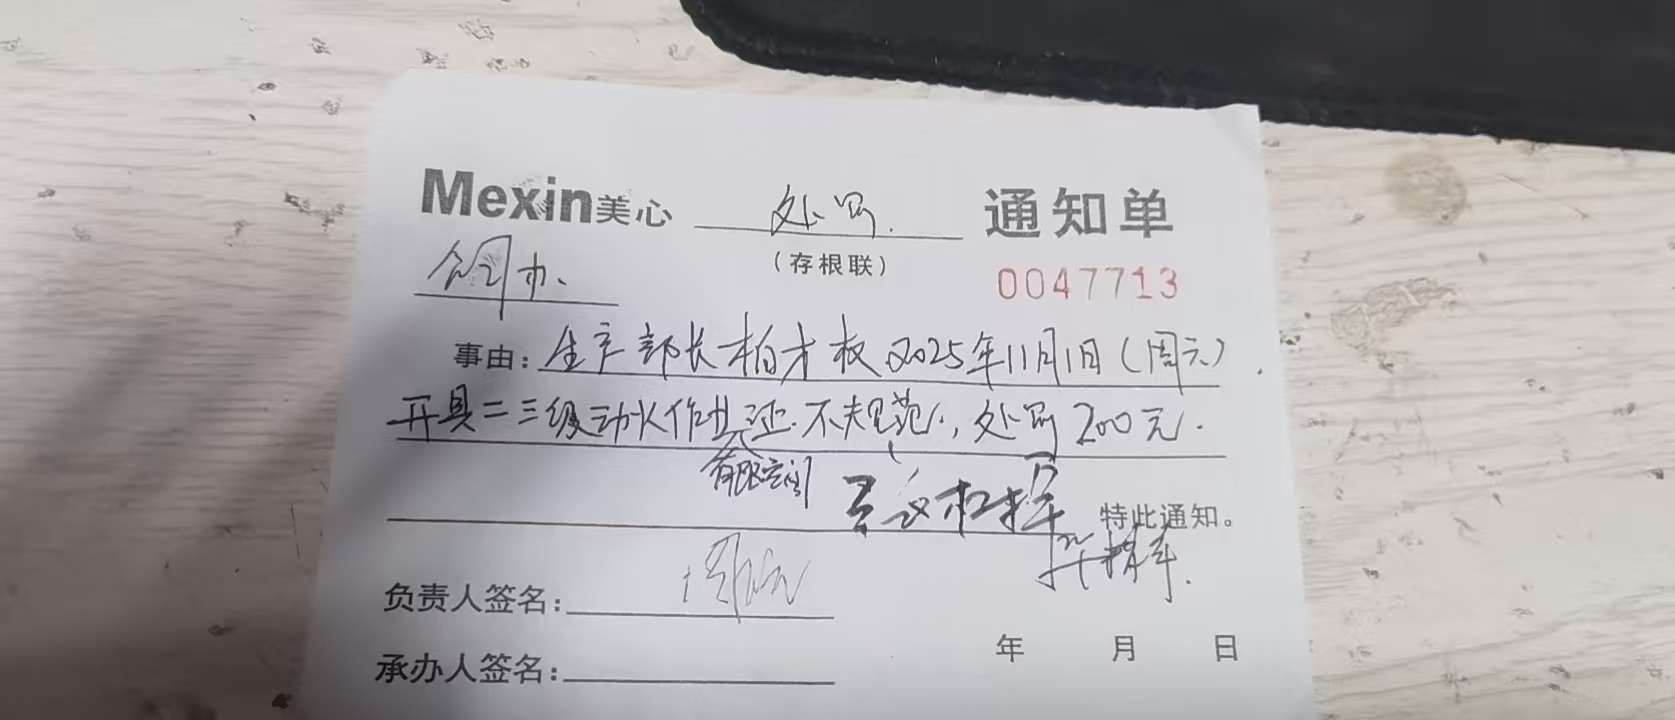 Mexin美心 处罚 通知单
(存根联)
0047713
事由: 生产部长柏才权2025年11月1日(周六)
开具二三级动火作业证不规范,处罚200元.
有限空间
特此通知。
负责人签名:
年 月 日
承办人签名: